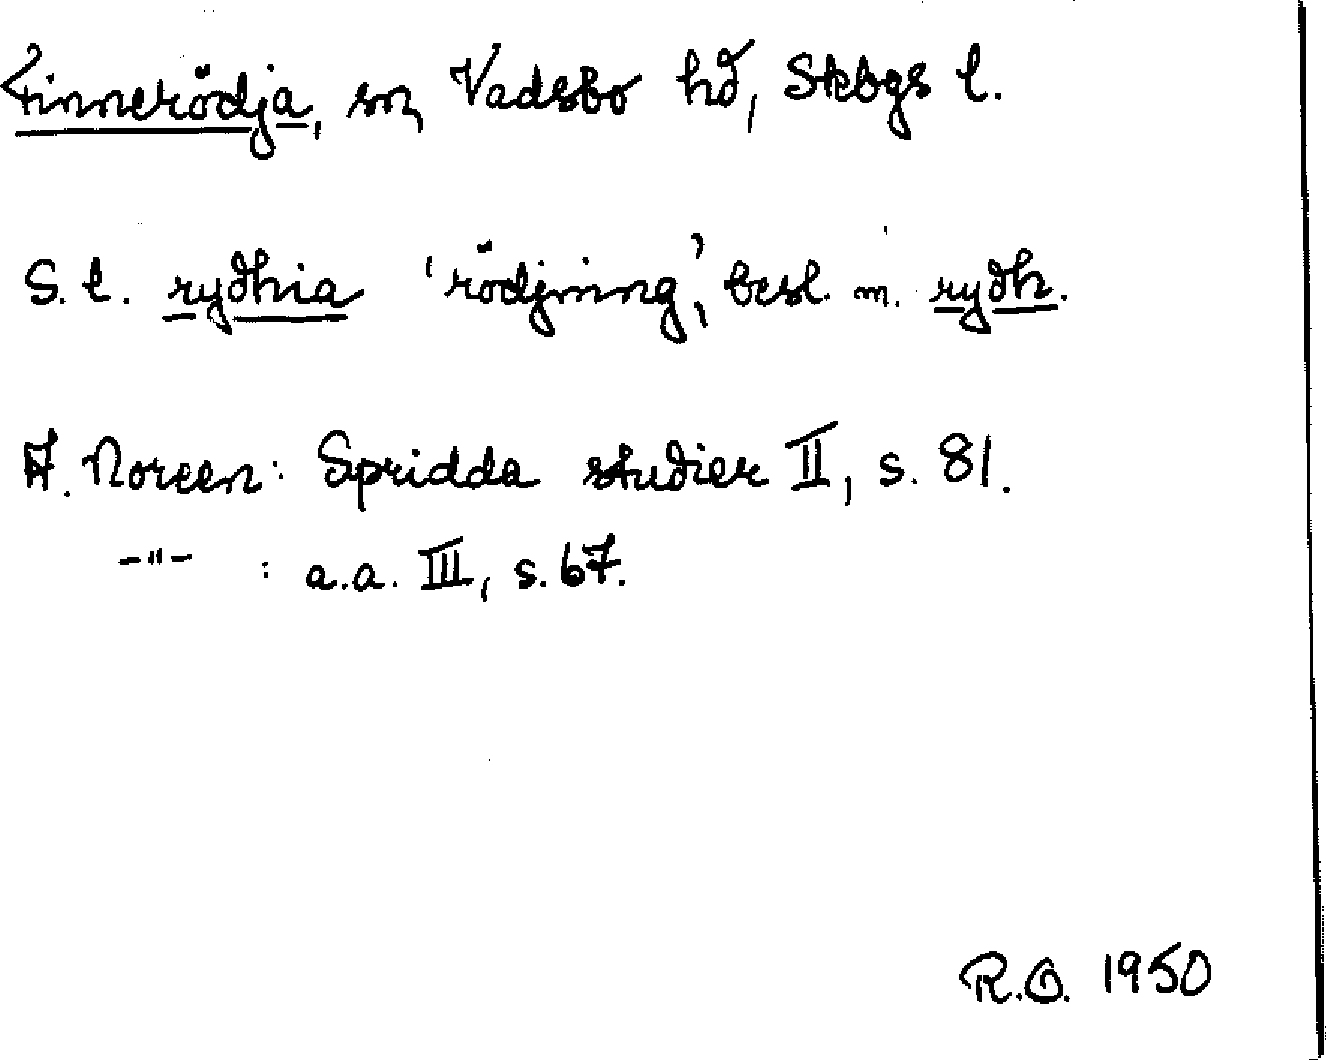 Finnerödja, sn, Vadsbo hd, Skbgs l.
S. l. rydhia 'rödjning', besl. m. rydh.
A. Noreen: Spridda studier II, s. 81.
—"— : a.a. III, s. 67.
R.O. 1950